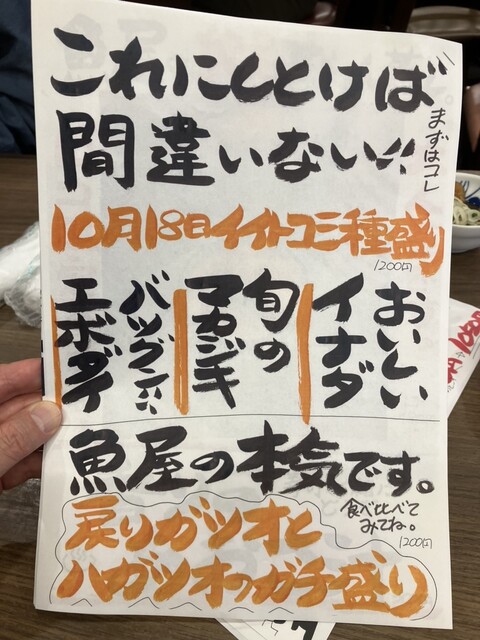 これにしとけば
間違いない!!
まずはコレ
10月18日イイトコ三種盛り
1200円
おいしい
イナダ
旬の
マカジキ
バツグン!!
エボダイ
魚屋の本気です。
食べ比べて
みてね。
1200円
戻りガツオと
ハガツオのガチ盛り